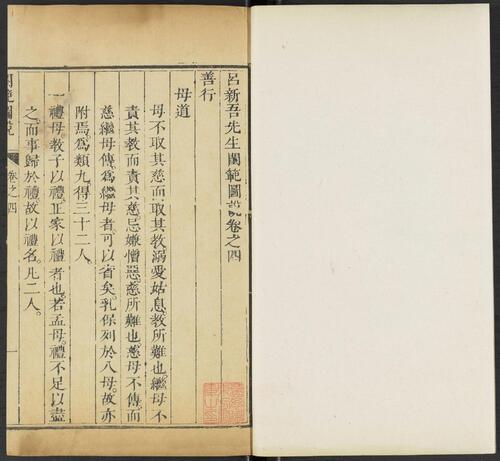 呂新吾先生閨範圖說卷之四
善行
母道
母不取其慈而取其教溺愛姑息教所難也繼母不
責其教而責其慈忌嫌憎惡慈所難也慈母不傳而
慈繼母傳為繼母者可以省矣乳保列於八母故亦
附焉為類九得三十二人。
一禮母教子以禮正家以禮者也若孟母禮不足以盡
之而事歸於禮故以禮名凡二人。
閨範圖說
卷之四
一